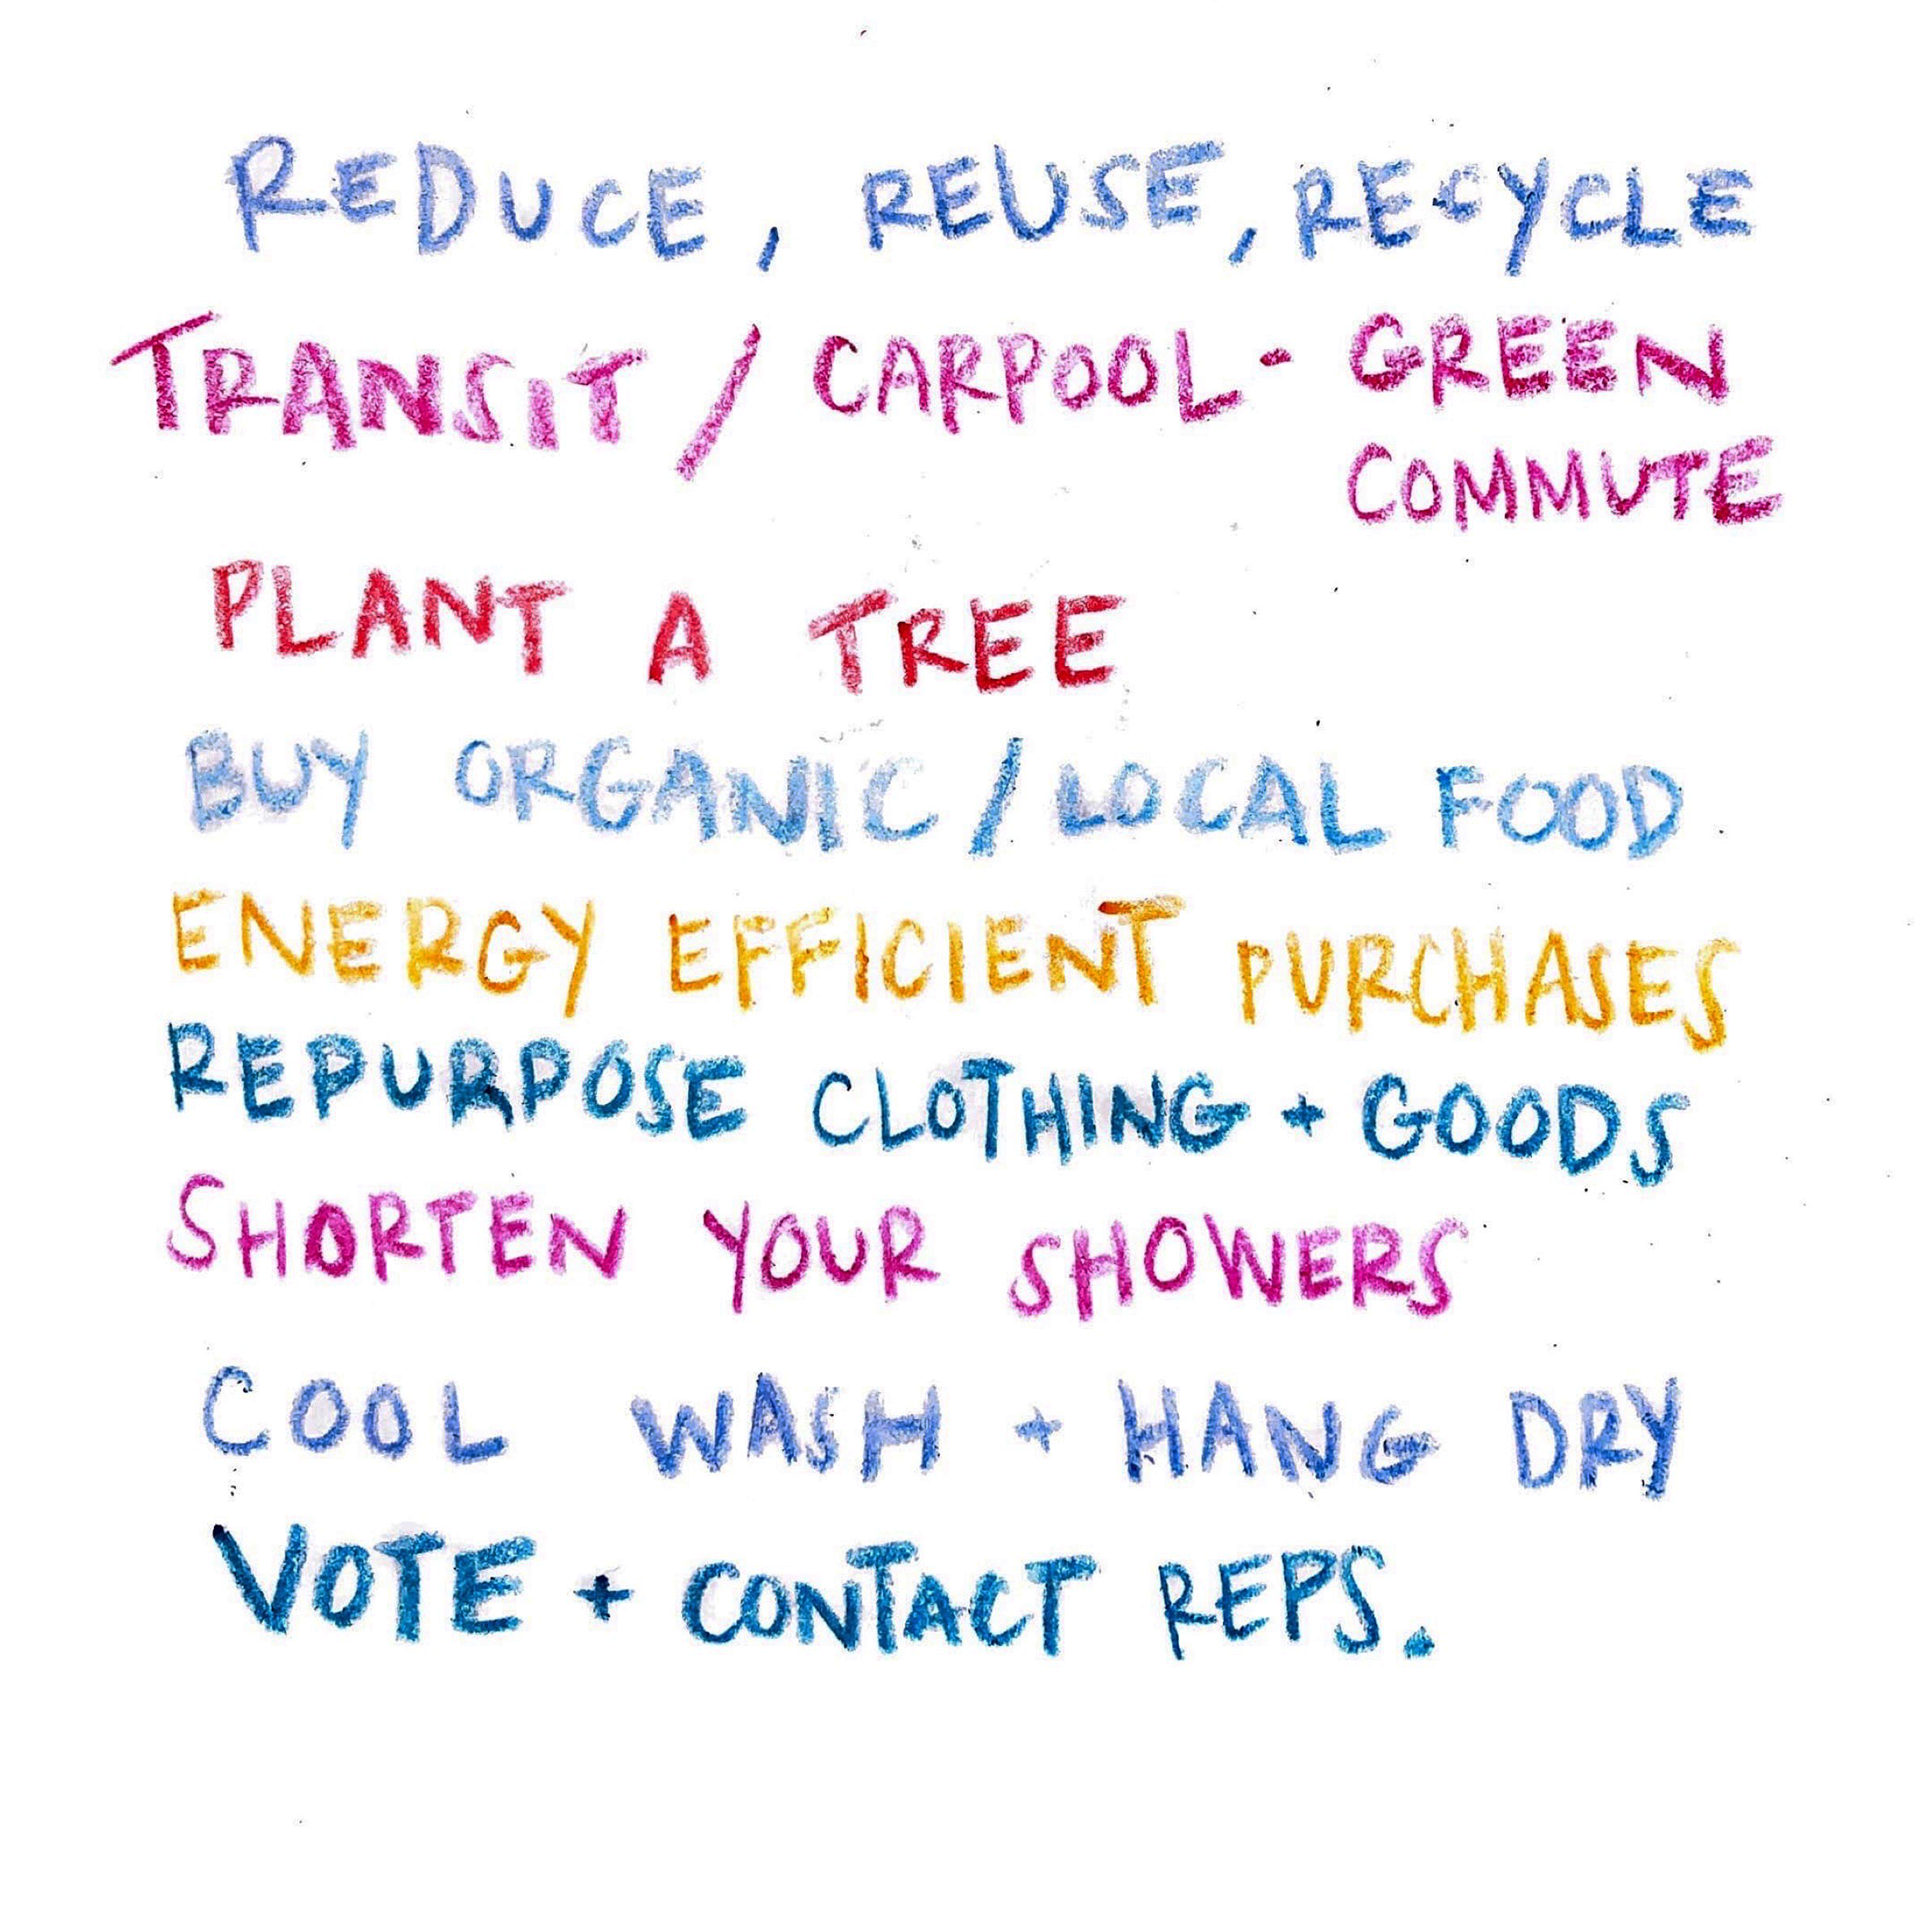 REDUCE, REUSE, RECYCLE
TRANSIT / CARPOOL - GREEN
COMMUTE
PLANT A TREE
BUY ORGANIC / LOCAL FOOD
ENERGY EFFICIENT PURCHASES
REPURPOSE CLOTHING + GOODS
SHORTEN YOUR SHOWERS
COOL WASH + HANG DRY
VOTE + CONTACT REPS.